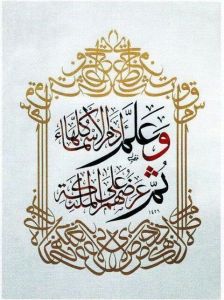 وَعَلَّمَ آدَمَ الْأَسْمَاءَ كُلَّهَا
ثُمَّ عَرَضَهُمْ عَلَى الْمَلَائِكَةِ